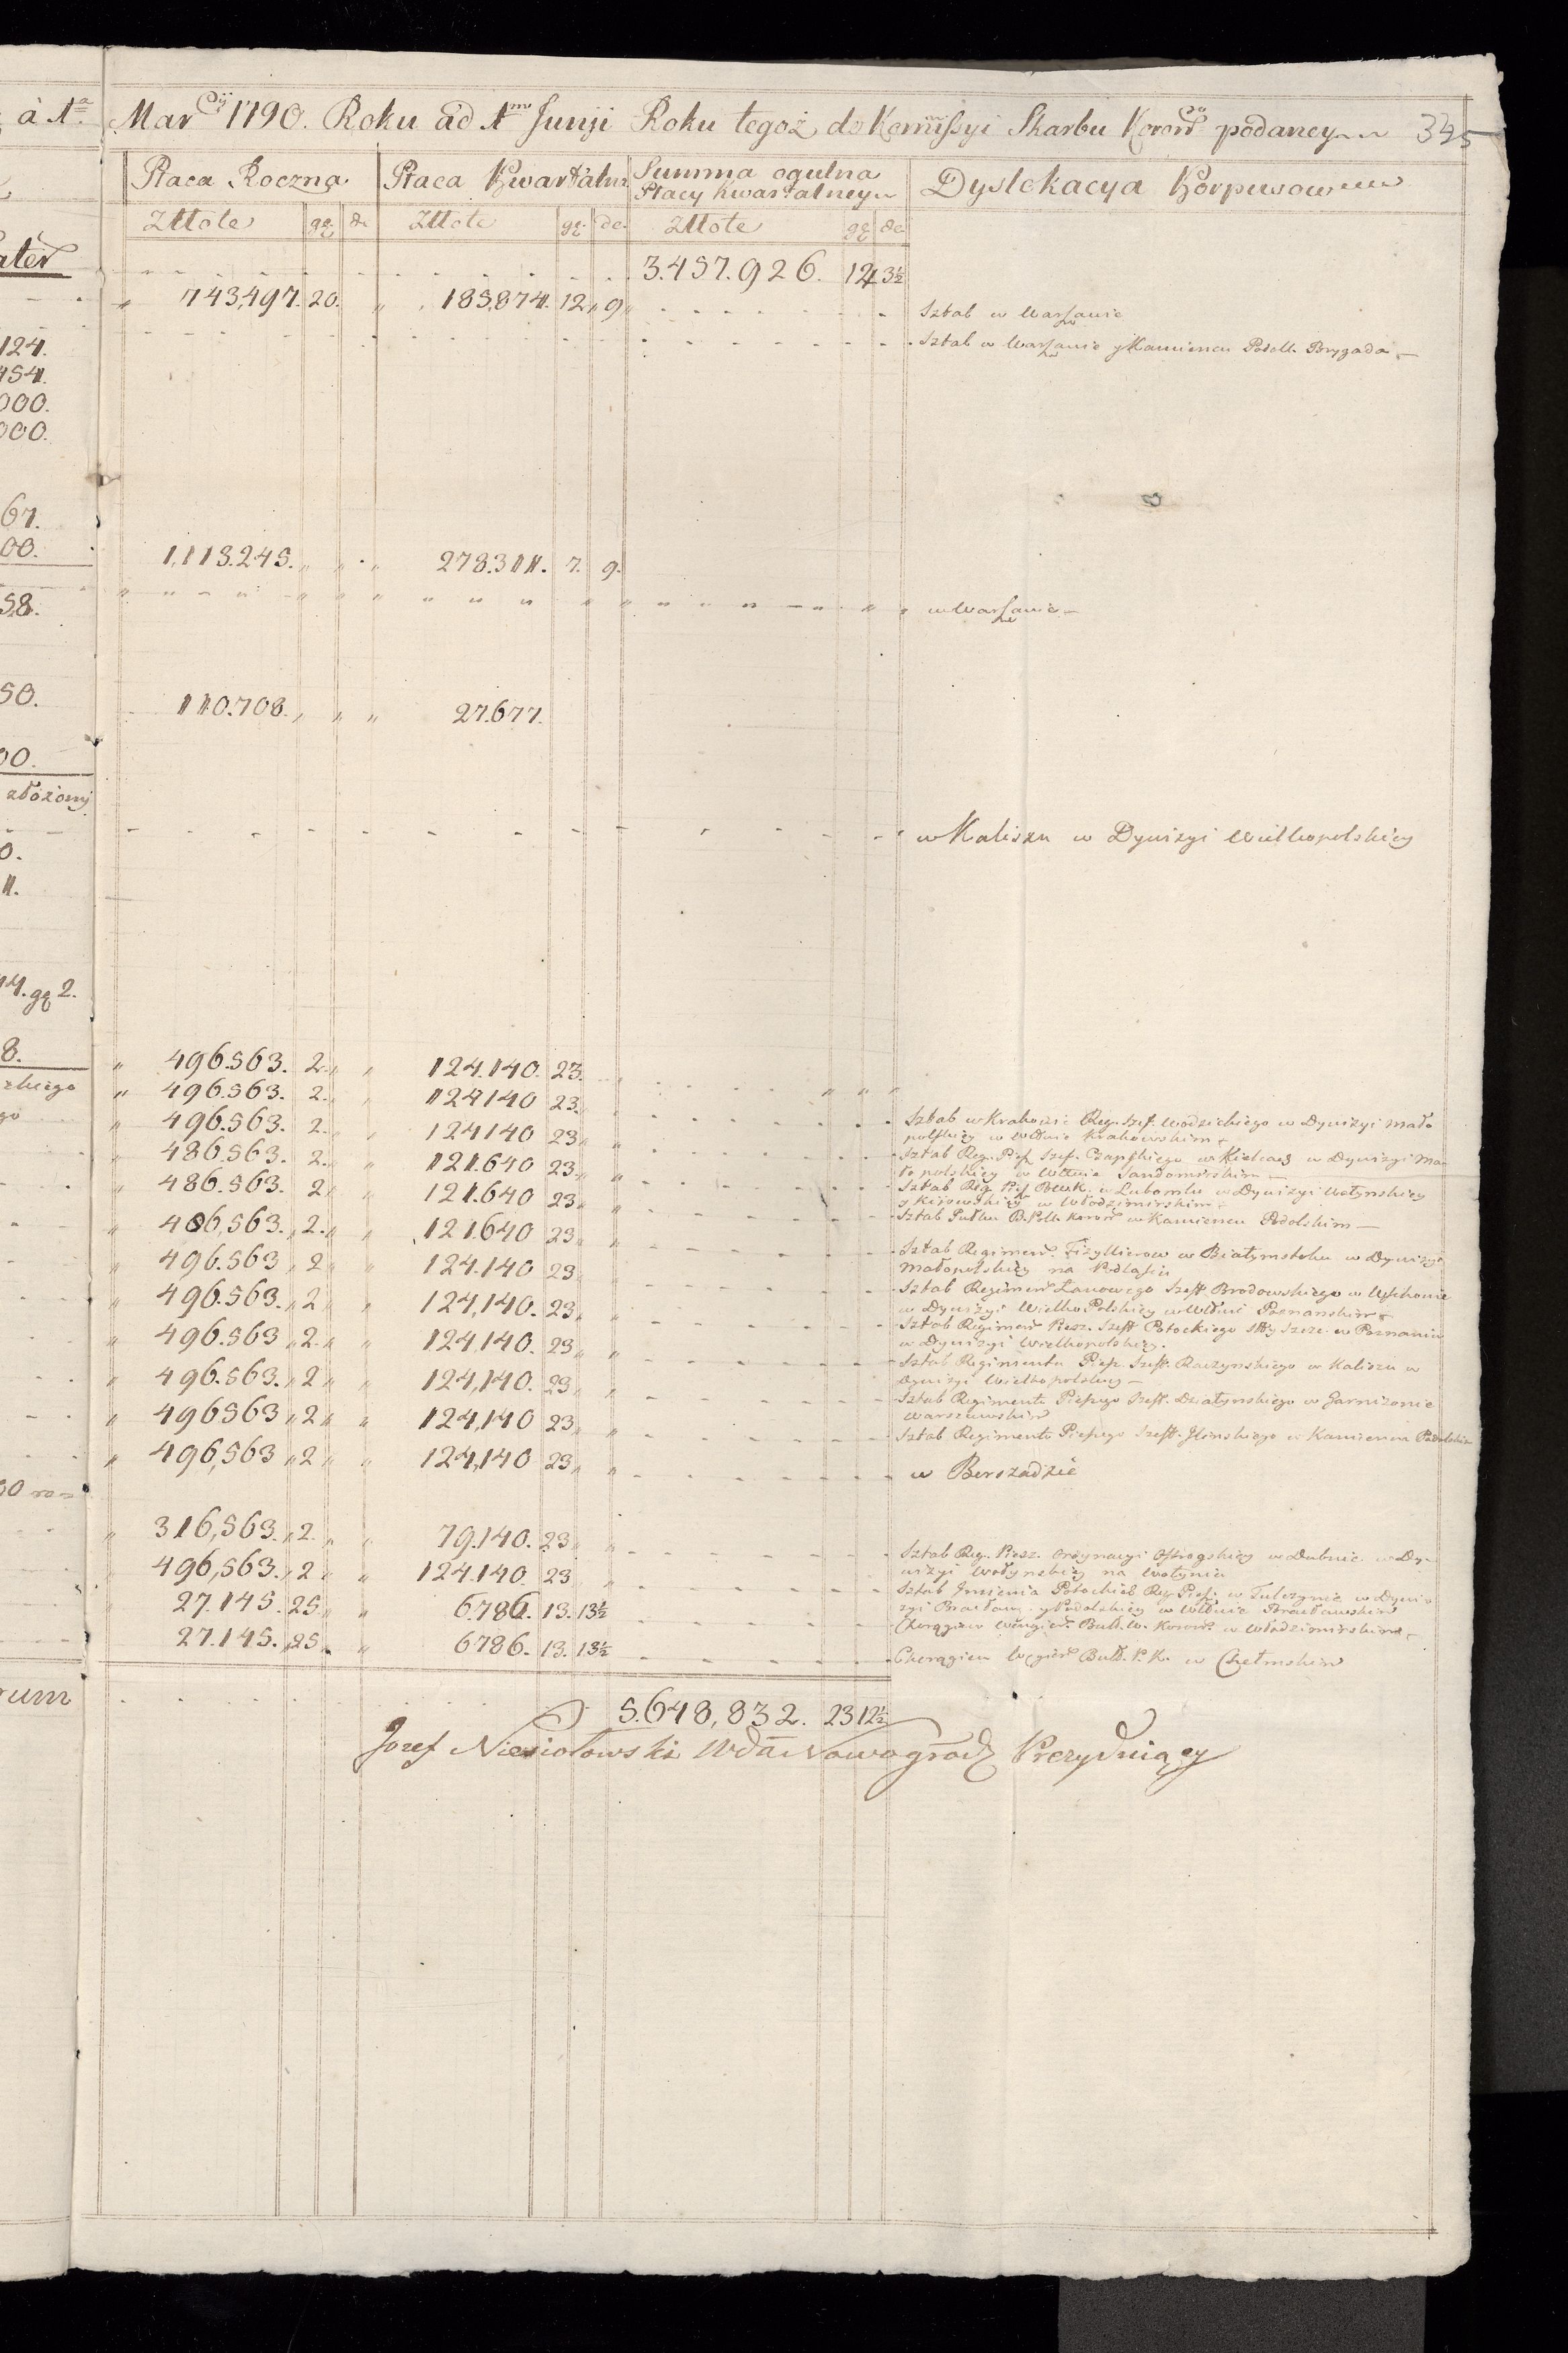 à 1ª Mar cij 1790. Roku ad 1mo Junji Roku tegoż do Komissyi Skarbu Koronł podaney 345
Płaca Roczna Płaca Kwartalna Summa ogulna Płacy Kwartalney Dyslokacya Korpusow
Złłote gę de Złłote gę de Złłote gę de
3.457.926. 12 13½
743,497. 20. 185,874. 12 9 Sztab w Warszawie
Sztab w Warszawie y Kamiencu Podoll. Brygada
124.
454.
000.
000.
67.
00. 1,113.245. 278.311. 7. 9.
58. w Warszawie
50. 110.708. 27.677.
00.
złożony
w Kaliszu w Dywizyi Wielkopolskiey
0.
11.
14. gę 2.
8. 496.563. 2. 124.140. 23.
496.563. 2. 124140 23.
496.563. 2. 124140 23 Sztab w Krakowie Reg. Szef. Wodzickiego w Dywizyi Mało
polskiey w Wdtwie Krakowskim
486.563. 2. 121.640 23 Sztab Reg. Piesz. Szef. Czapskiego w Kielcach w Dywizyi Ma
ło polskiey w Wdtwie Sandomirskim
486.563. 2 121.640 23 Sztab Reg. Piesz. B.W.K. w Lubomlu w Dywizyi Wołynskiey
y Kijowskiey w Włodzimirskim
486,563. 2. 121.640 23 Sztab Pułku B.Poll. Koronł w Kamiencu Podolskim
496.563 2 124.140 23 Sztab Regimenł. Fizyllierow w Białymstoku w Dywizyi
Małopolskiey na Podlasiu
496.563. 2 124,140. 23 Sztab Regimenł Łanowego Szeff Brodowskiego w Wschowie
w Dywizyi Wielko Polskiey w Wdtwie Poznanskim
496.563 2. 124,140. 23 Sztab Regimenł Piesz. Szeff Potockiego Stty Szcze. w Poznaniu
w Dywizyi Wielkopolskiey.
496.563. 2 124,140. 23 Sztab Regimentu Piesz. Szeff. Raczynskiego w Kaliszu w
Dywizyi Wielkopolskiey
496563 2 124,140 23 Sztab Regimentu Pieszego Szeff. Działynskiego w Garnizonie
Warszawskim
496,563 2 124,140 23 Sztab Regimentu Pieszego Szeff. Ilinskiego w Kamiencu Podolskim
w Berszadzie
316,563. 2. 79.140. 23 Sztab Reg. Piesz. Ordynacyi Ostrogskiey w Dubnie w Dy
wizyi Wołynskiey na Wołyniu
496,563. 2 124.140. 23 Sztab Imienia Potockich Reg. Piesz. w Tulczynie w Dywi
zyi Bracław. y Podolskiey w Wdtwie Bracławskim
27.145. 25 6.786. 13. 13½ Chorągiew Węgier. Buł. W. Koronł. w Włodzimirskim
27.145. 25 6786. 13. 13½ Chorągiew Węgier Buł. P. K. w Chełmskim
5.648,832. 23 12½
Jozef Niesiołowski Wda Nowogrodz Prezyduiący